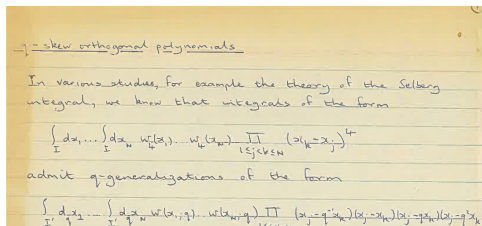 q-skew orthogonal polynomials
In various studies, for example the theory of the Selberg
integral, we know that integrals of the form
∫_I dx_1 ... ∫_I dx_N w_4(x_1) ... w_4(x_N) ∏_{1≤j<k≤N} (x_k - x_j)^4
admit q-generalizations of the form
∫_{I'} d_q x_1 ... ∫_{I'} d_q x_N w(x_1;q) ... w(x_N;q) ∏ (x_j - q^{-1}x_k)(x_j - x_k)(x_j - qx_k)(x_j - q^2 x_k